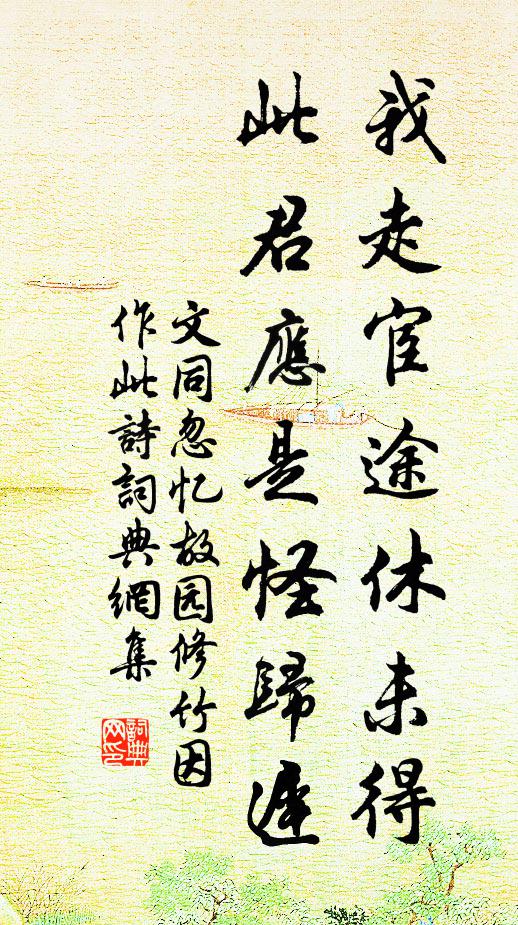 我走宦途休未得
此君應是怪歸遲
文同忽忆故园修竹因
作此詩詞典網集
詞典
网印